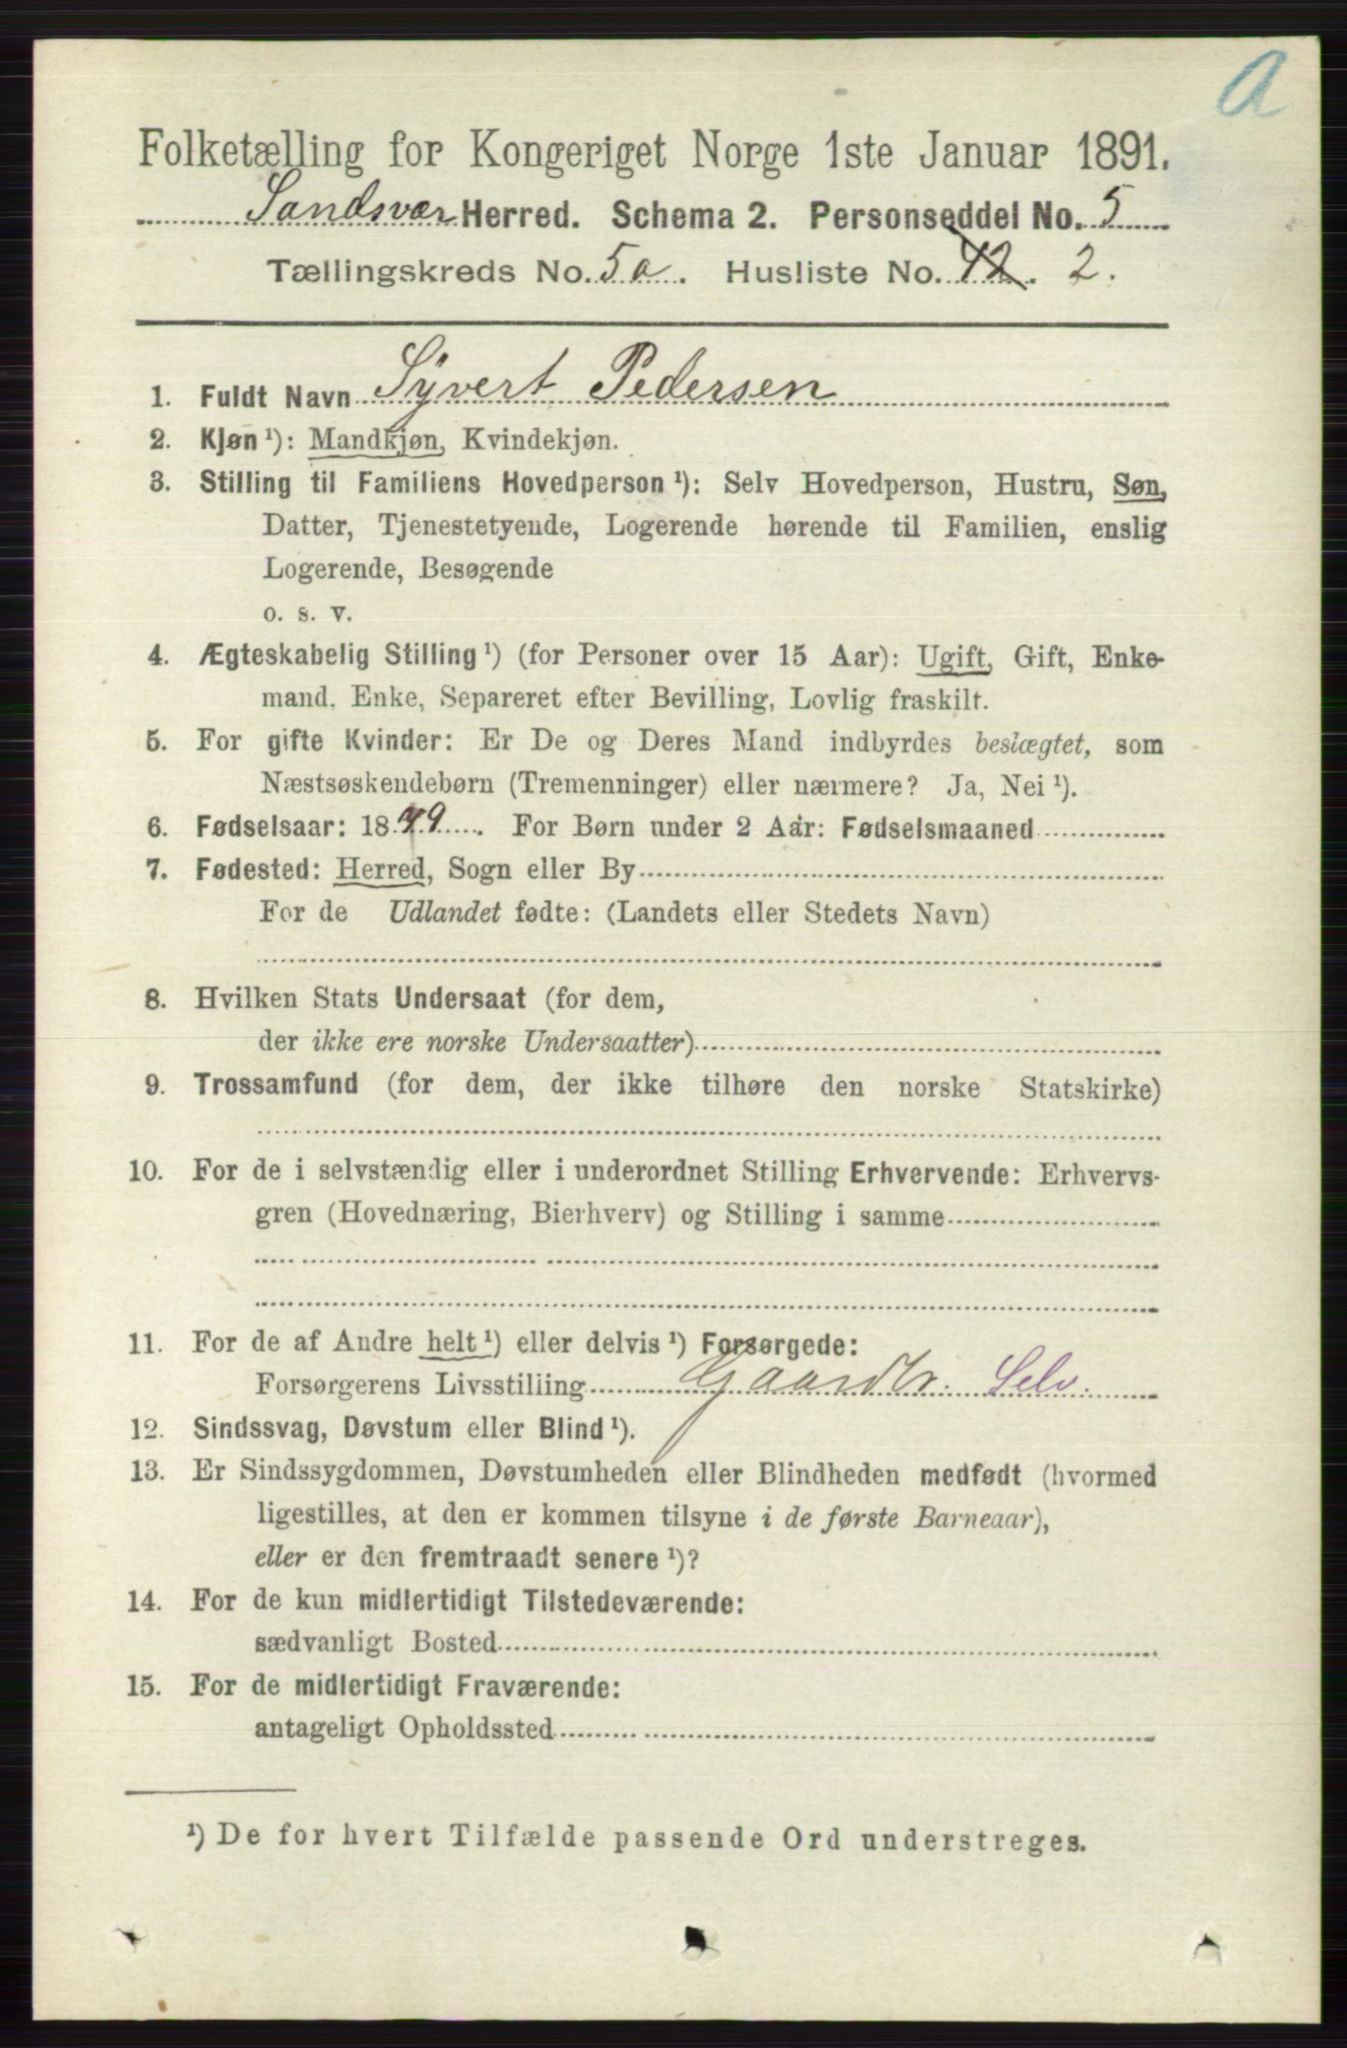 a
Folketælling for Kongeriget Norge 1ste Januar 1891.
Sandsvær Herred. Schema 2. Personseddel No. 5
Tællingskreds No. 5a. Husliste No. 42. 2.
1. Fuldt Navn Syvert Pedersen
2. Kjøn ¹): Mandkjøn, Kvindekjøn.
3. Stilling til Familiens Hovedperson ¹): Selv Hovedperson, Hustru, Søn,
Datter, Tjenestetyende, Logerende hørende til Familien, enslig
Logerende, Besøgende
o. s. v.
4. Ægteskabelig Stilling ¹) (for Personer over 15 Aar): Ugift, Gift, Enke-
mand, Enke, Separeret efter Bevilling, Lovlig fraskilt.
5. For gifte Kvinder: Er De og Deres Mand indbyrdes beslægtet, som
Næstsøskendebørn (Tremenninger) eller nærmere? Ja, Nei ¹).
6. Fødselsaar: 1879. For Børn under 2 Aar: Fødselsmaaned
7. Fødested: Herred, Sogn eller By
For de Udlandet fødte: (Landets eller Stedets Navn)
8. Hvilken Stats Undersaat (for dem,
der ikke ere norske Undersaatter)
9. Trossamfund (for dem, der ikke tilhøre den norske Statskirke)
10. For de i selvstændig eller i underordnet Stilling Erhvervende: Erhvervs-
gren (Hovednæring, Bierhverv) og Stilling i samme
11. For de af Andre helt ¹) eller delvis ¹) Forsørgede:
Forsørgerens Livsstilling Gaardbr. Selv.
12. Sindssvag, Døvstum eller Blind ¹).
13. Er Sindssygdommen, Døvstumheden eller Blindheden medfødt (hvormed
ligestilles, at den er kommen tilsyne i de første Barneaar),
eller er den fremtraadt senere ¹)?
14. For de kun midlertidigt Tilstedeværende:
sædvanligt Bosted
15. For de midlertidigt Fraværende:
antageligt Opholdssted
¹) De for hvert Tilfælde passende Ord understreges.